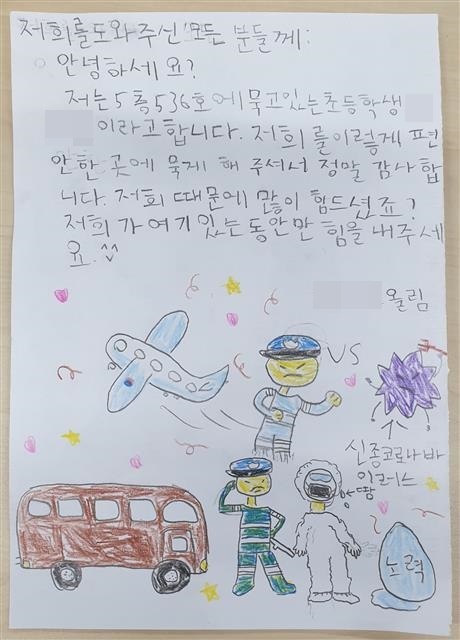 저희를도와주신 모든 분들께:
안녕하세요?
저는5층536호에묵고있는초등학생
이라고합니다. 저희를이렇게 편
안한 곳에 묵게 해 주셔서 정말 감사합
니다. 저희 때문에 많이 힘드셨죠?
저희가여기있는동안만 힘을내주세
요.^^
올림
VS
신종코로나바
이러스
땀
노력